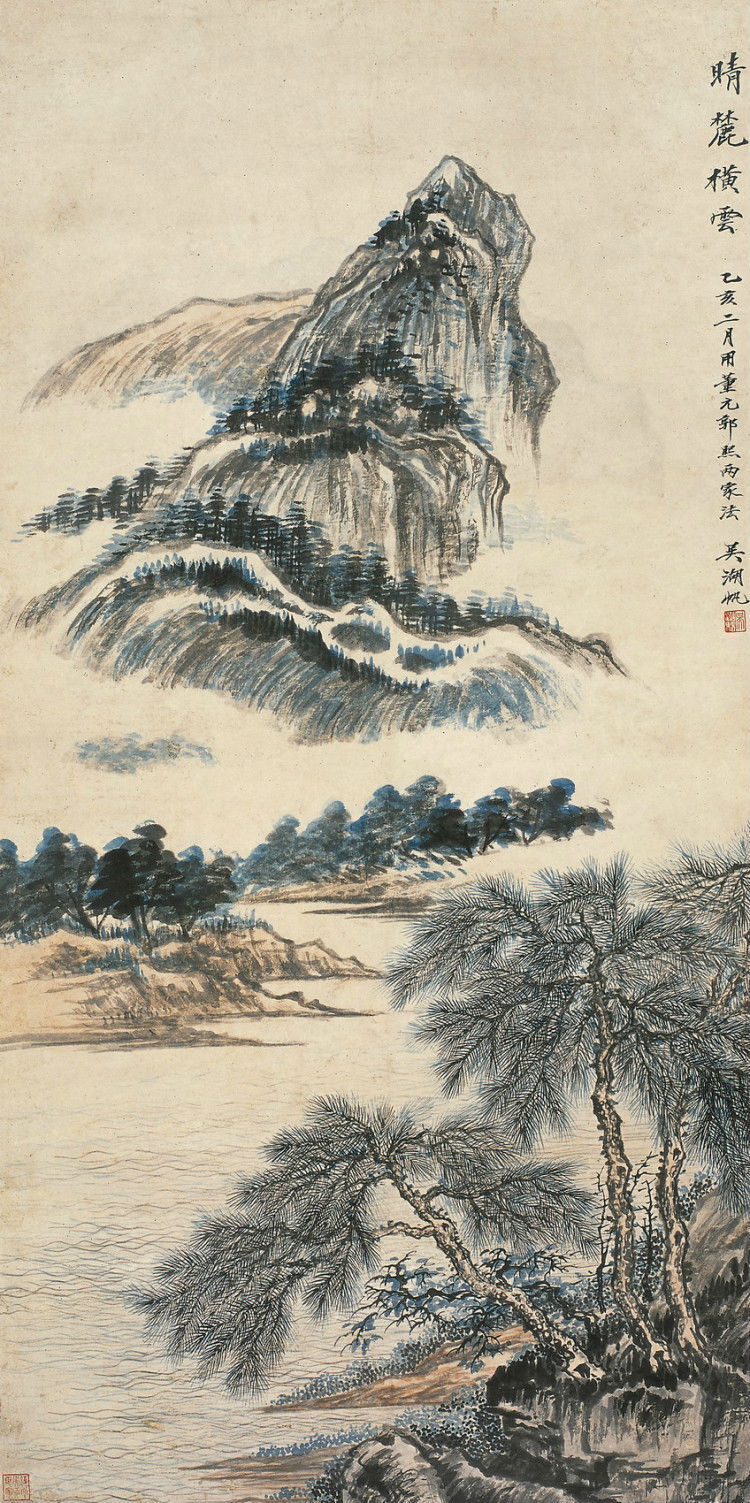 晴麓橫雲
乙亥二月用董元郭熙兩家法 吳湖帆